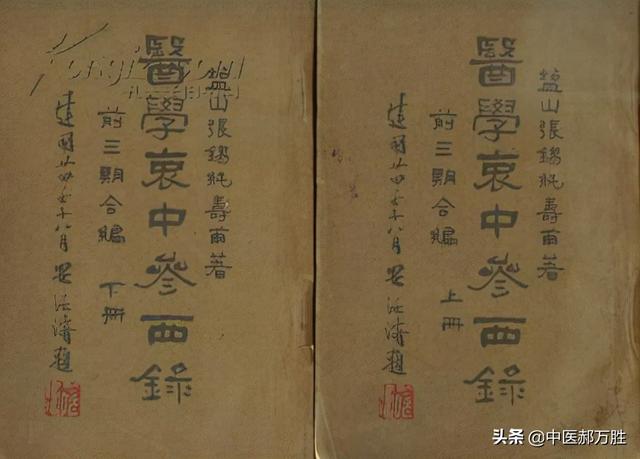 鹽山張錫純壽甫著
醫學衷中參西錄
前三期合編 上冊
建國廿四年 八月 題
鹽山張錫純壽甫著
醫學衷中參西錄
前三期合編 下冊
建國廿四年 八月 題
头条 @中医郝万胜